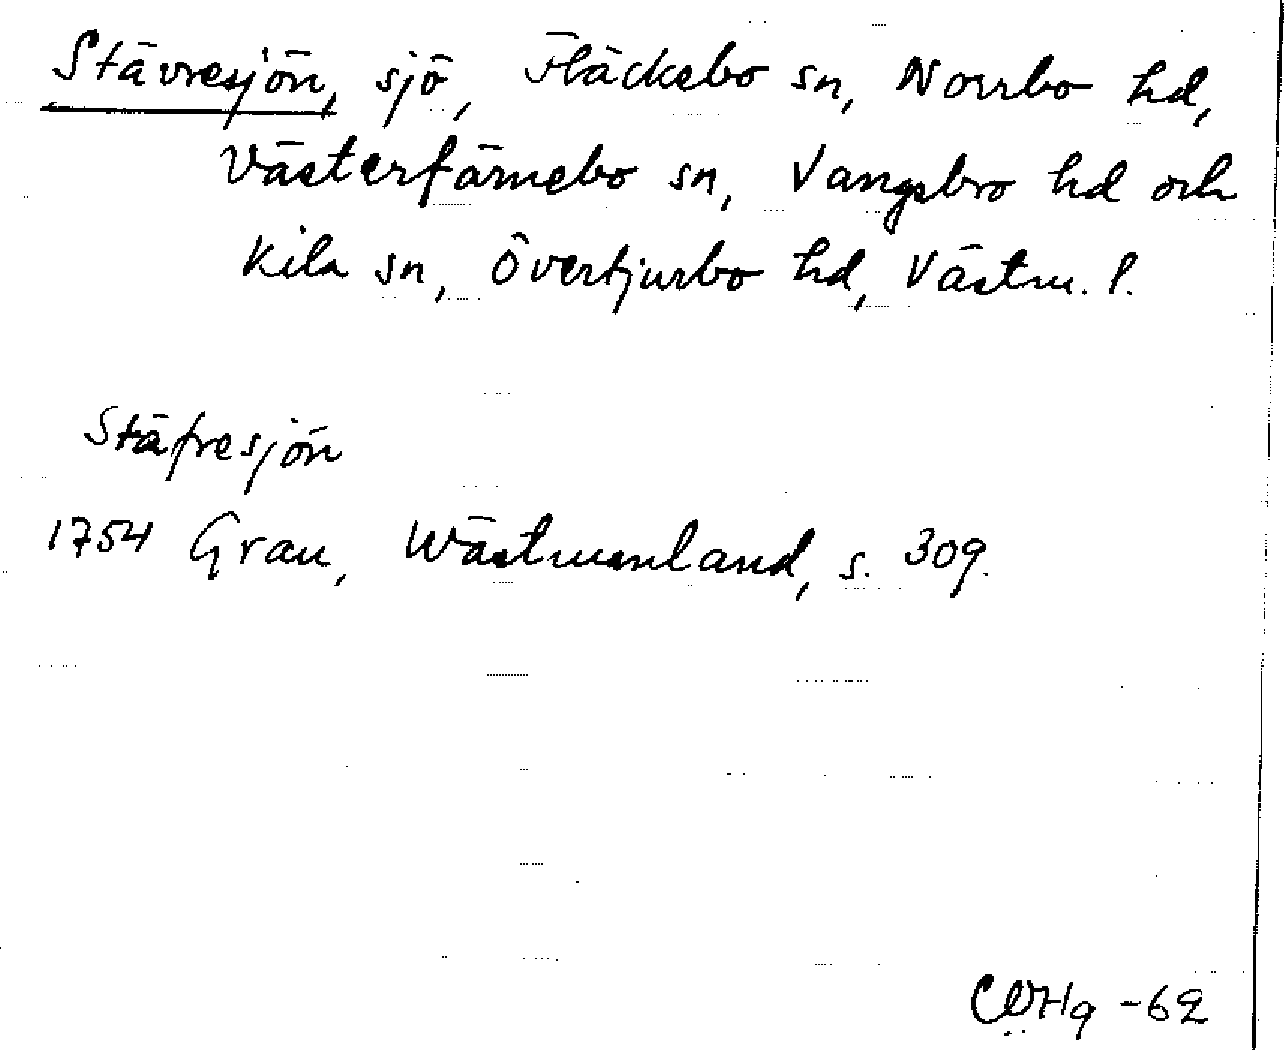 Stävresjön, sjö, Fläckebo sn, Norrbo hd,
Västerfärnebo sn, Vangsbro hd och
Kila sn, Övertjurbo hd, Västm. l.
Stäfresjön
1754 Grau, Wästmanland, s. 309.
CWHg -62